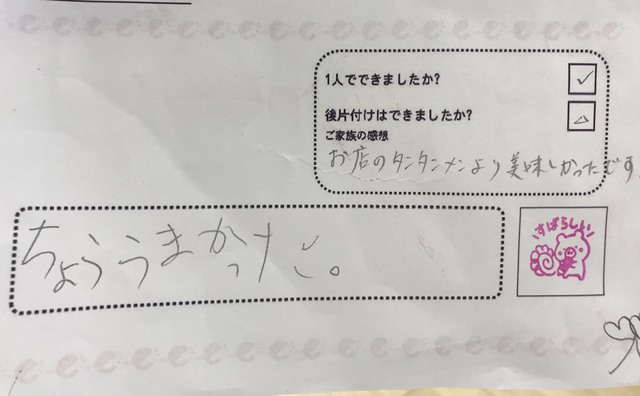 1人でできましたか?
後片付けはできましたか?
ご家族の感想
お店のタンタンメンより美味しかったです。
ちょううまかった。
すばらしい